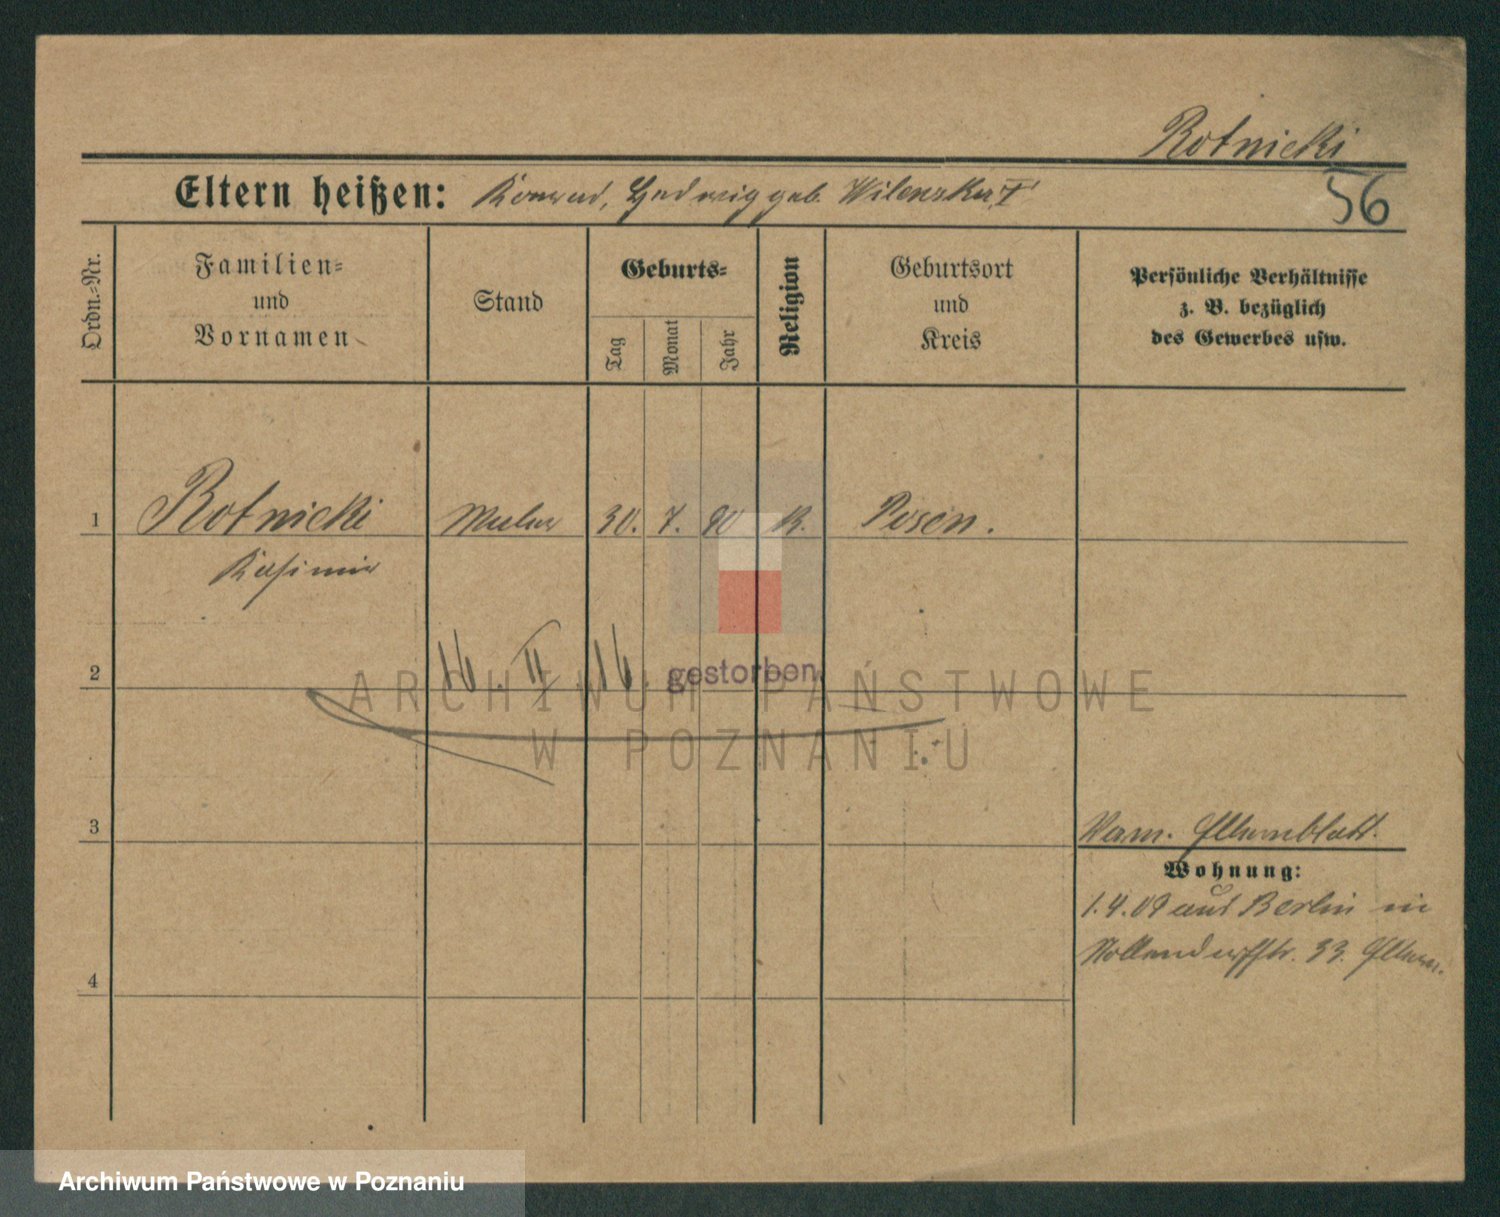 Rotnicki
Eltern heißen: Konrad, Hedwig geb. Wilenska
56
Ordn.-Nr.
Familien-
und
Vornamen
Stand
Geburts-
Tag
Monat
Jahr
Religion
Geburtsort
und
Kreis
Persönliche Verhältnisse
z. B. bezüglich
des Gewerbes usw.
1 Rotnicki Maler 30. 7. 90 K. Posen.
Kasimir
2 16. II. 16. gestorben
ARCHIWUM PAŃSTWOWE
W POZNANIU
3
Elternblatt.
Wohnung:
1.4.09 aus Berlin in
Nollendorfstr. 33. Eltern.
4
Archiwum Państwowe w Poznaniu